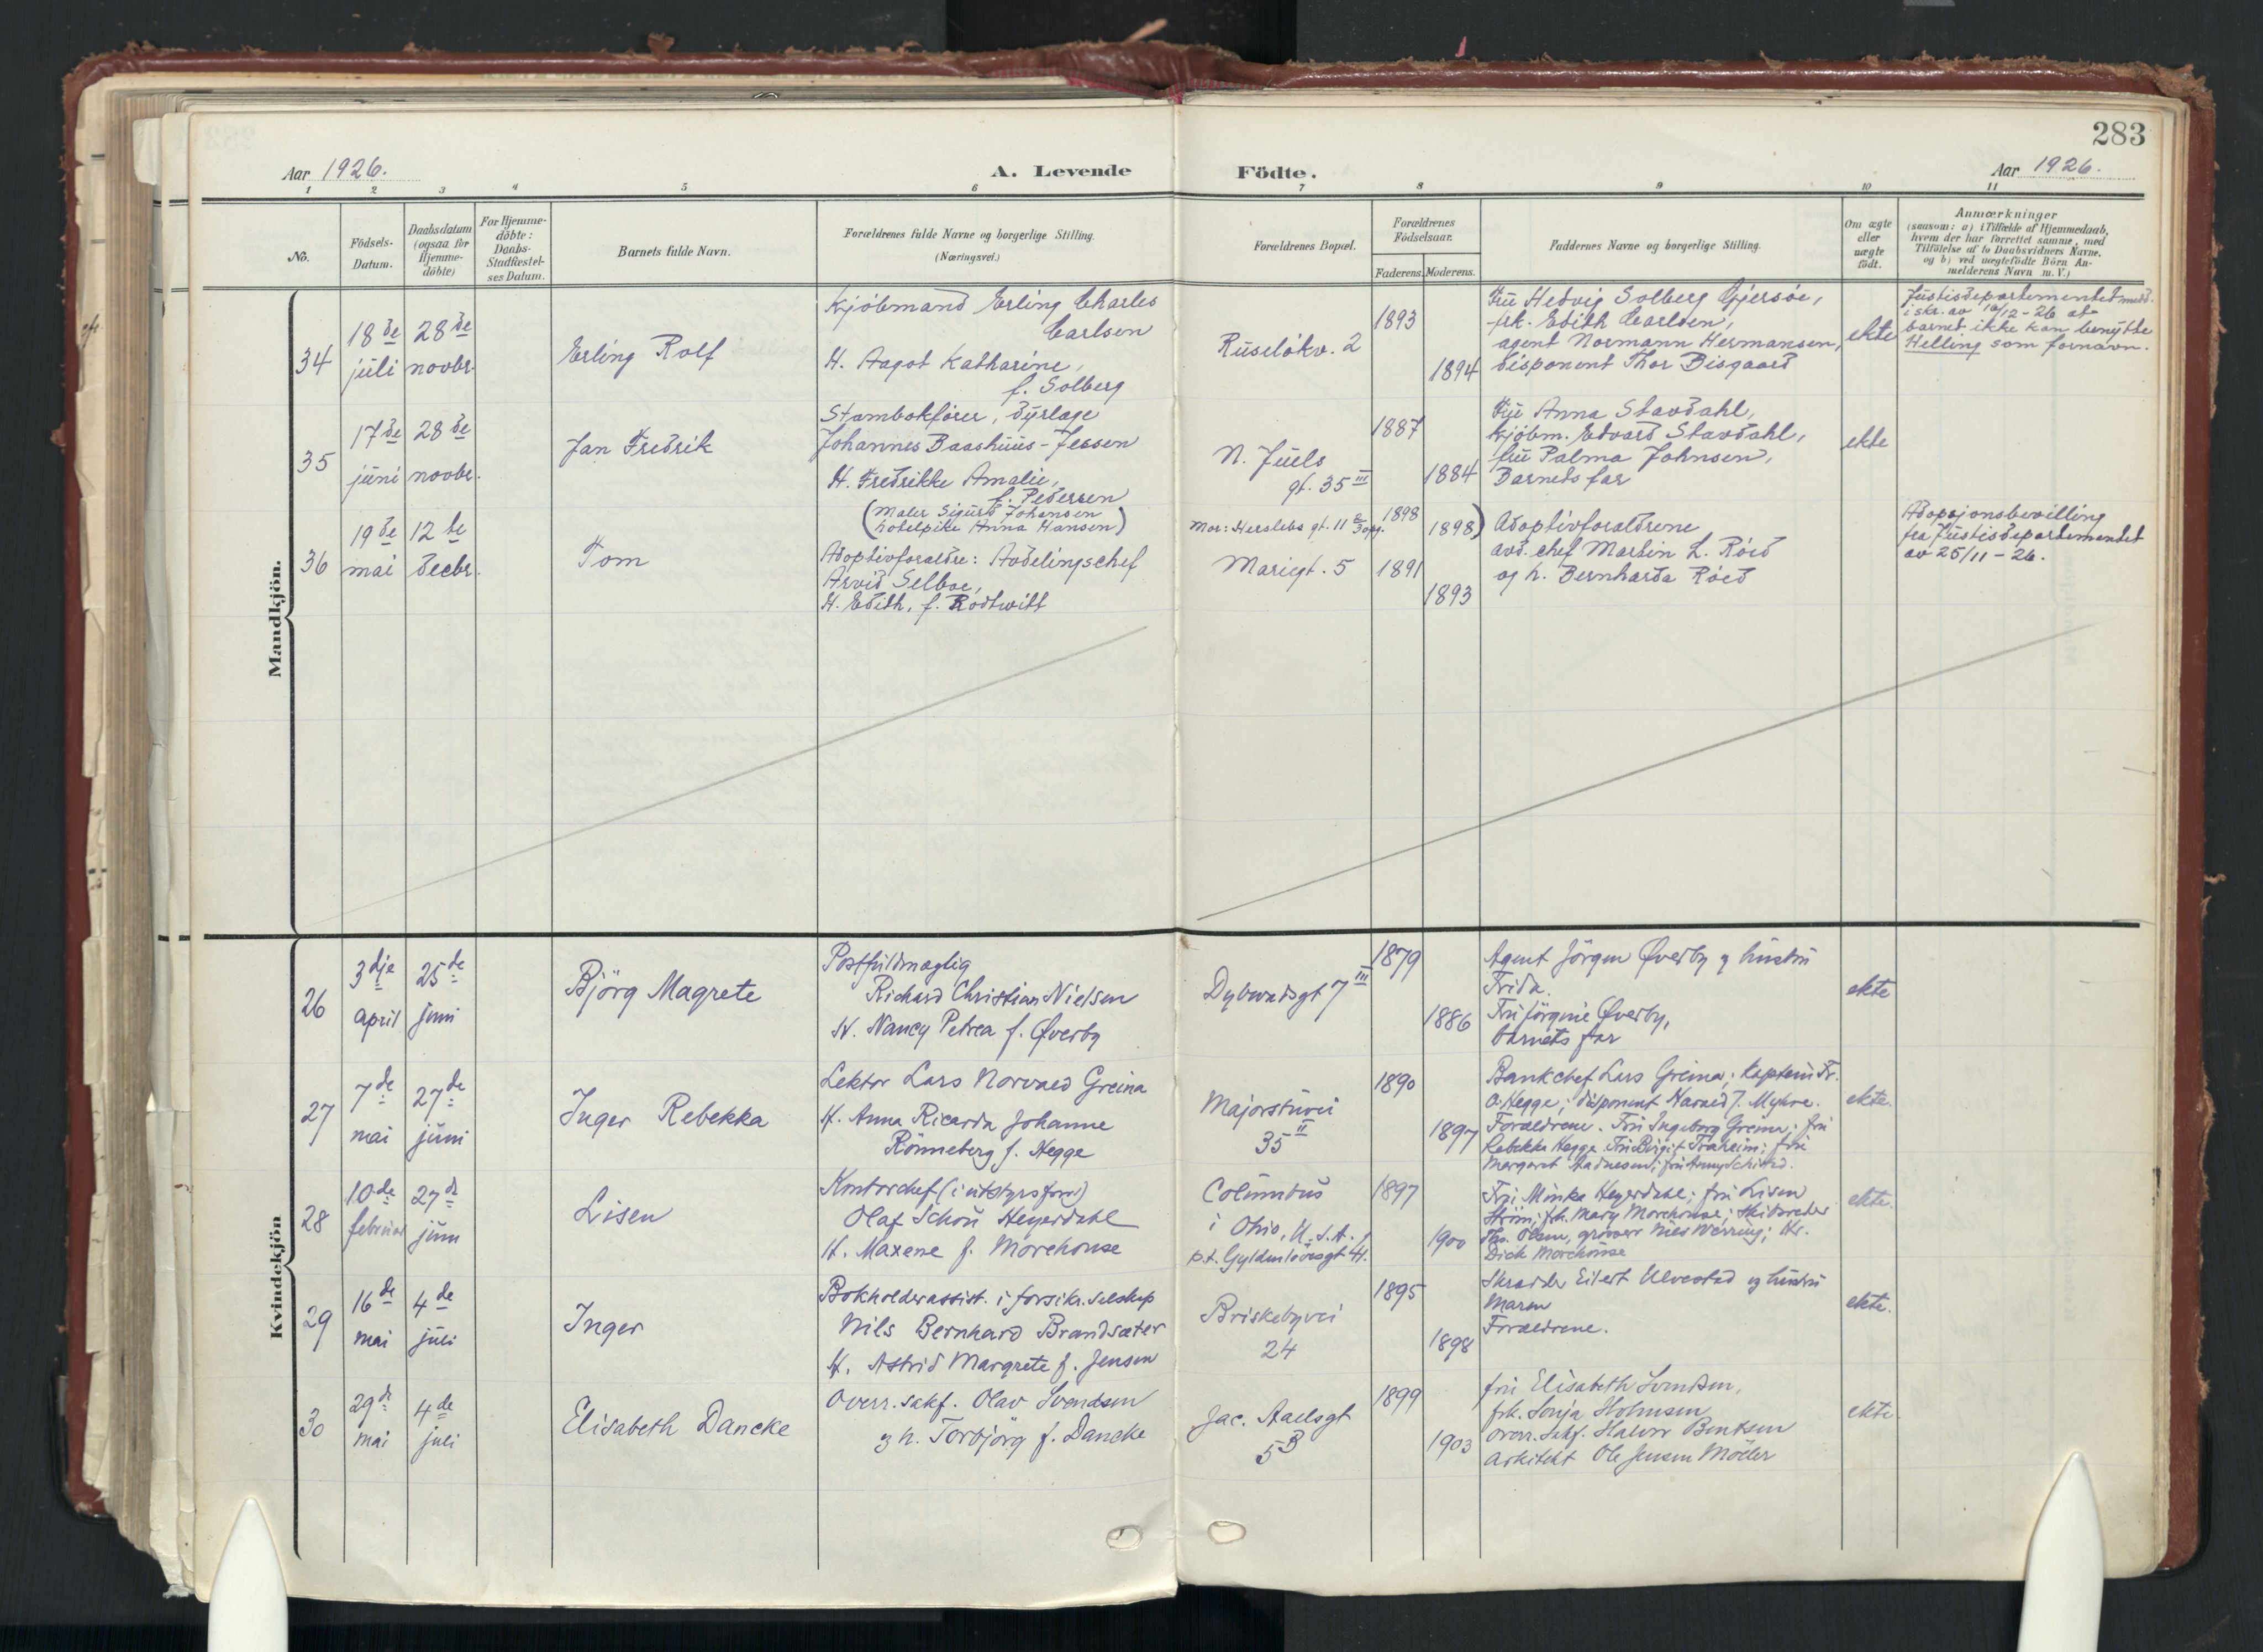 283
Aar 1926.
A. Levende
Födte.
Aar 1926.
1 2 3 4 5 6 7 8 9 10 11
No.
Födsels-
Datum.
Daabsdatum
(ogsaa for
Hjemme-
döbte)
For Hjemme-
döbte:
Daabs-
Stadfæstel-
ses Datum.
Barnets fulde Navn.
Forældrenes fulde Navne og borgerlige Stilling.
(Næringsvei.)
Forældrenes Bopæl.
Forældrenes
Födselsaar.
Faderens. Moderens.
Faddernes Navne og borgerlige Stilling.
Om ægte
eller
uægte
født.
Anmærkninger
(saasom: a) i Tilfælde af Hjemmedaab,
hvem der har forrettet samme, med
Tilföielse af to Daabsvidners Navne,
og b) ved uægtefödte Börn An-
melderens Navn m. V.)
Mandkjön.
34
18de
juli
28de
novbr.
Erling Rolf
Kjöbmand Erling Charles
Carlsen
H. Aagot Katharine,
f. Solberg
Ruselökv. 2
1893
1894
Fru Hedvig Solberg Gjersöe,
frk. Edith Carlsen,
agent Normann Hermansen,
disponent Thor Bisgaard
ekte
Justisdepartementet medd.
i skr. av 10/12-26 at
barnet ikke kan benytte
Helling som fornavn.
35
17de
juni
28de
novbr.
Jan Fredrik
Stambokförer, dyrlæge
Johannes Baashuus-Jessen
H. Fredrikke Amalie,
f. Pedersen
N. Juels
gt. 35 III
1887
1884
Fru Anna Stavdahl,
kjöbm. Edvard Stavdahl,
fru Palma Johnsen,
Barnets far
ekte
36
19de
mai
12te
decbr.
Tom
(Maler Sigurd Johansen
hotelpike Anna Hansen)
Adoptivforældre: Avdelingschef
Arvid Selboe,
H. Edith, f. Rodtwitt
Mor: Herslebs gt. 11 2 opg.
Mariegt. 5
1898
1898)
1891
1893
Adoptivforældrene
avd. chef Martin L. Röed
og h. Bernharda Röed
Adopsjonsbevilling
fra Justisdepartementet
av 25/11-26.
Kvindekjön
26
3dje
april
25de
juni
Björg Magrete
Postfuldmægtig
Richard Christian Nielsen
H. Nancy Petrea f. Øverby
Dybwadsgt 7 III
1879
1886
Agent Jörgen Øverby og hustru
Frida.
Fru Jörgine Øverby,
barnets far
ekte
27
7de
mai
27de
juni
Inger Rebekka
Lektor Lars Norvald Greina
H. Anna Ricarda Johanne
Rönneberg f. Hegge
Majorstuvei
35 II
1890
1897
Bankchef Lars Greina; Kaptein Fr.
O. Hegge; disponent Harald J. Myhre.
Forældrene. Fru Ingeborg Greina; fru
Rebekka Hegge. Fru Birgit Traheim; fru
Margaret Aadnesen; fru Anny Schiød.
ekte.
28
10de
februar
27de
juni
Lisen
Kontorchef (i utstyrsforr.)
Olaf Schou Heyerdahl
H. Maxene f. Morehouse
Columbus
i Ohio, U.S.A.,
p.t. Gyldenlövesgt 41.
1897
1900
Fru Minka Heyerdahl; fru Lisen
Ström; frk. Mary Morehouse; Skibsreder
Ths. Olsen, grosserer Niels Werring; Hr.
Dick Morehouse
ekte.
29
16de
mai
4de
juli
Inger
Bokholderassist. i forsikr. selskap
Nils Bernhard Brandsæter
H. Astrid Margrete f. Jensen
Briskebyvei
24
1895
1898
Skrædder Eilert Ulvestad og hustru
Maren
Forældrene.
ekte.
30
29de
mai
4de
juli
Elisabeth Dancke
Overr. sakf. Olav Svendsen
og h. Torbjörg f. Dancke
Jac. Aallsgt
5B
1899
1903
fru Elisabeth Svendsen,
frk. Sonja Holmsen
overr. sakf. Halvor Bentsen
Arkitekt Ole Jensen Möller
ekte